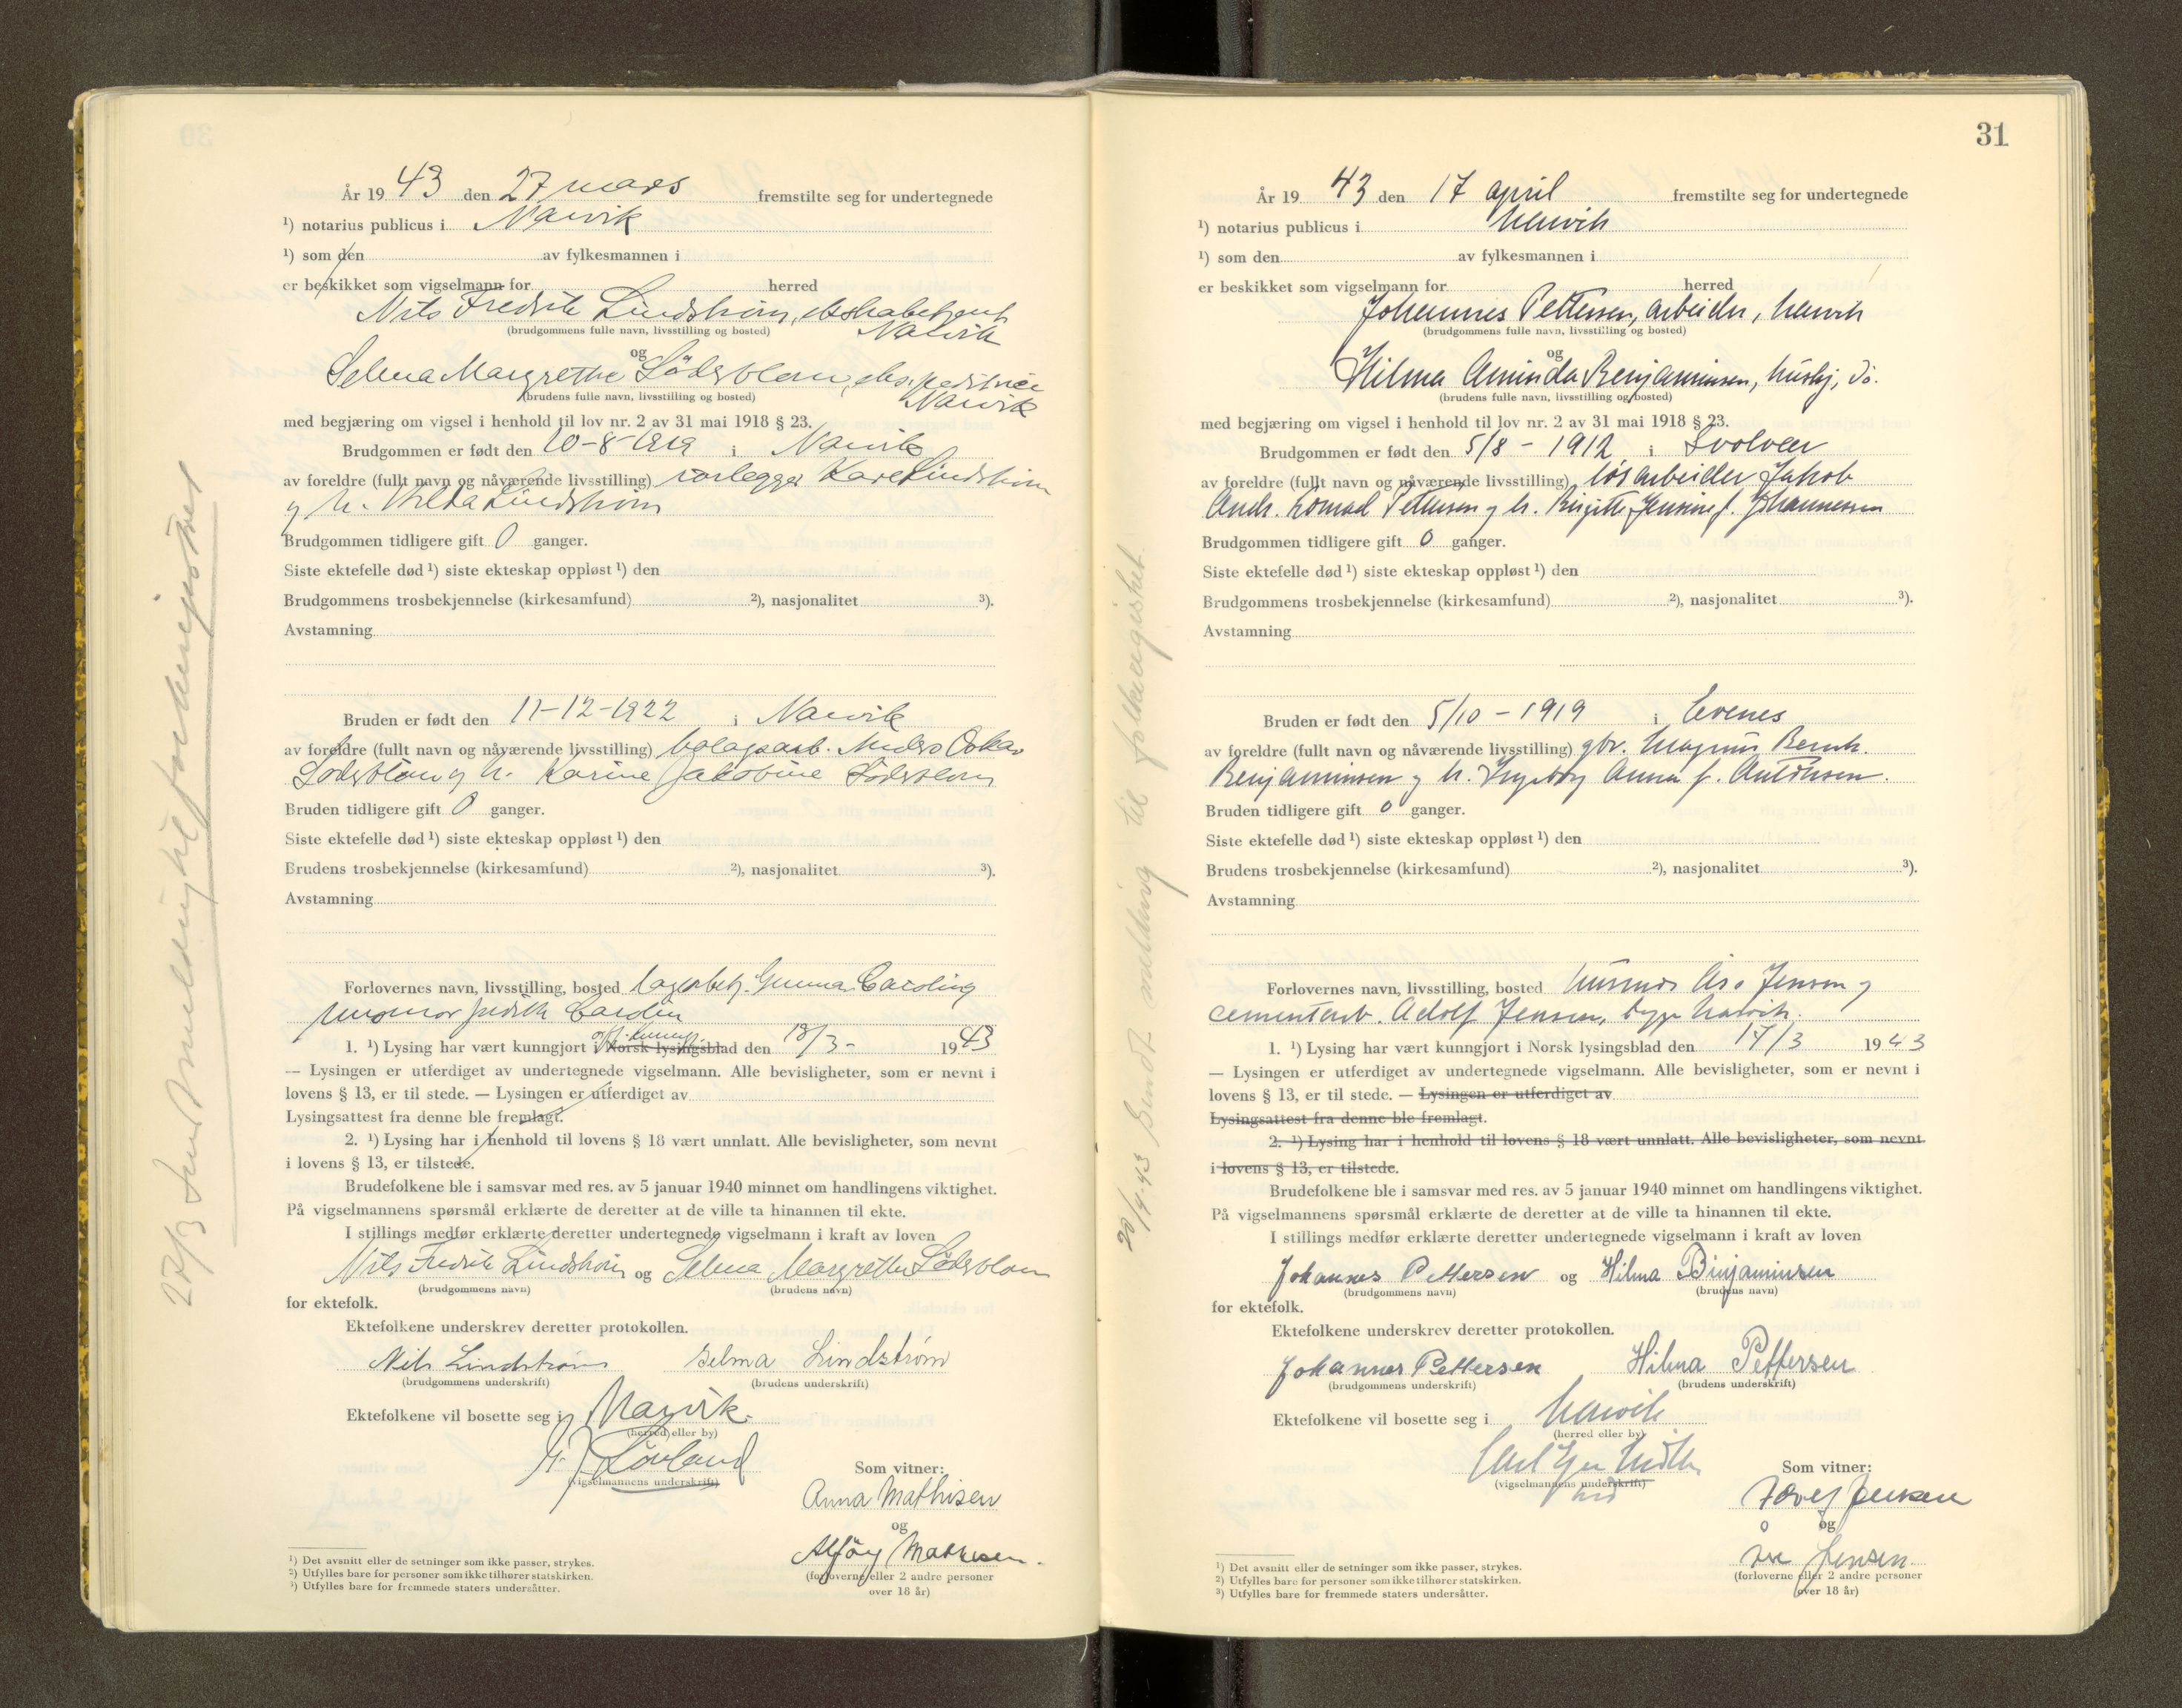 År 1943 den 27 mars fremstilte seg for undertegnede
¹) notarius publicus i Narvik
¹) som den av fylkesmannen i
er beskikket som vigselmann for herred
Nils Fredrik Lindstrøm,
(brudgommens fulle navn, livsstilling og bosted) Narvik
og
Selma Margrethe Söderblom,
(brudens fulle navn, livsstilling og bosted) Narvik
med begjæring om vigsel i henhold til lov nr. 2 av 31 mai 1918 § 23.
Brudgommen er født den 10-8-1919 i Narvik
av foreldre (fullt navn og nåværende livsstilling) rørlegger Kåre Lindstrøm
og h. Lindstrøm
Brudgommen tidligere gift 0 ganger.
Siste ektefelle død ¹) siste ekteskap oppløst ¹) den
Brudgommens trosbekjennelse (kirkesamfund) ²), nasjonalitet ³).
Avstamning
Bruden er født den 11-12-1922 i Narvik
av foreldre (fullt navn og nåværende livsstilling) bolagsarb. Anders Oskar
Söderblom og h. Karine Jakobine Söderblom
Bruden tidligere gift 0 ganger.
Siste ektefelle død ¹) siste ekteskap oppløst ¹) den
Brudens trosbekjennelse (kirkesamfund) ²), nasjonalitet ³).
Avstamning
Forlovernes navn, livsstilling, bosted lagerbetj. Gunnar Carolin og
Carolin
1. ¹) Lysing har vært kunngjort i Norsk lysingsblad den 18/3- 1943
— Lysingen er utferdiget av undertegnede vigselmann. Alle bevisligheter, som er nevnt i
lovens § 13, er til stede. — Lysingen er utferdiget av
Lysingsattest fra denne ble fremlagt.
2. ¹) Lysing har i henhold til lovens § 18 vært unnlatt. Alle bevisligheter, som nevnt
i lovens § 13, er tilstede.
Brudefolkene ble i samsvar med res. av 5 januar 1940 minnet om handlingens viktighet.
På vigselmannens spørsmål erklærte de deretter at de ville ta hinannen til ekte.
I stillings medfør erklærte deretter undertegnede vigselmann i kraft av loven
Nils Fredrik Lindstrøm og Selma Margrethe Söderblom
(brudgommens navn) (brudens navn)
for ektefolk.
Ektefolkene underskrev deretter protokollen.
Nils Lindstrøm Selma Lindstrøm
(brudgommens underskrift) (brudens underskrift)
Ektefolkene vil bosette seg i Narvik.
(herred eller by)
Løvland
(vigselmannens underskrift) Som vitner:
Anna Mathisen
og
Mathisen.
(forloverne eller 2 andre personer
over 18 år)
¹) Det avsnitt eller de setninger som ikke passer, strykes.
²) Utfylles bare for personer som ikke tilhører statskirken.
³) Utfylles bare for fremmede staters undersåtter.
27/3 Sendt melding til folkeregisteret
31
År 1943 den 17 april fremstilte seg for undertegnede
¹) notarius publicus i Narvik
¹) som den av fylkesmannen i
er beskikket som vigselmann for herred
Johannes Pettersen, arbeider, Narvik
(brudgommens fulle navn, livsstilling og bosted)
og
Hilma Aminda Benjaminsen, hushj, do.
(brudens fulle navn, livsstilling og bosted)
med begjæring om vigsel i henhold til lov nr. 2 av 31 mai 1918 § 23.
Brudgommen er født den 5/8 - 1912 i Svolvær
av foreldre (fullt navn og nåværende livsstilling) løsarbeider Jakob
Andr. Konrad Pettersen og h. Birgitte Jensine f. Johannessen
Brudgommen tidligere gift 0 ganger.
Siste ektefelle død ¹) siste ekteskap oppløst ¹) den
Brudgommens trosbekjennelse (kirkesamfund) ²), nasjonalitet ³).
Avstamning
Bruden er født den 5/10 - 1919 i Evenes
av foreldre (fullt navn og nåværende livsstilling) gbr. Magnus Bernh.
Benjaminsen og h. Ingeborg Anna f. Antonsen.
Bruden tidligere gift 0 ganger.
Siste ektefelle død ¹) siste ekteskap oppløst ¹) den
Brudens trosbekjennelse (kirkesamfund) ²), nasjonalitet ³).
Avstamning
Forlovernes navn, livsstilling, bosted husmor Åse Jensen og
cementarb. Adolf Jensen, begge Narvik.
1. ¹) Lysing har vært kunngjort i Norsk lysingsblad den 17/3 1943
— Lysingen er utferdiget av undertegnede vigselmann. Alle bevisligheter, som er nevnt i
lovens § 13, er til stede. — Lysingen er utferdiget av
Lysingsattest fra denne ble fremlagt.
2. ¹) Lysing har i henhold til lovens § 18 vært unnlatt. Alle bevisligheter, som nevnt
i lovens § 13, er tilstede.
Brudefolkene ble i samsvar med res. av 5 januar 1940 minnet om handlingens viktighet.
På vigselmannens spørsmål erklærte de deretter at de ville ta hinannen til ekte.
I stillings medfør erklærte deretter undertegnede vigselmann i kraft av loven
Johannes Pettersen og Hilma Binjaminsen
(brudgommens navn) (brudens navn)
for ektefolk.
Ektefolkene underskrev deretter protokollen.
Johannes Pettersen Hilma Pettersen
(brudgommens underskrift) (brudens underskrift)
Ektefolkene vil bosette seg i Narvik
(herred eller by)
Carl
(vigselmannens underskrift) Som vitner:
Adolf Jensen
og
Åse Jensen
(forloverne eller 2 andre personer
over 18 år)
¹) Det avsnitt eller de setninger som ikke passer, strykes.
²) Utfylles bare for personer som ikke tilhører statskirken.
³) Utfylles bare for fremmede staters undersåtter.
20/4-43 Sendt melding til folkeregistret.